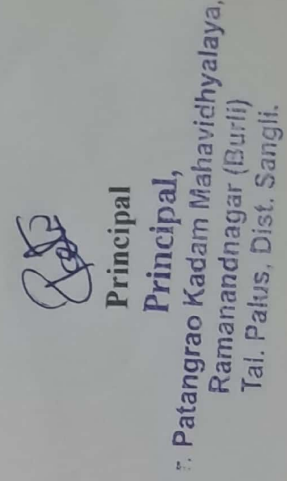 Principal
Principal,
Patangrao Kadam Mahavidhyalaya,
Ramanandnagar (Burli)
Tal. Palus, Dist. Sangli.